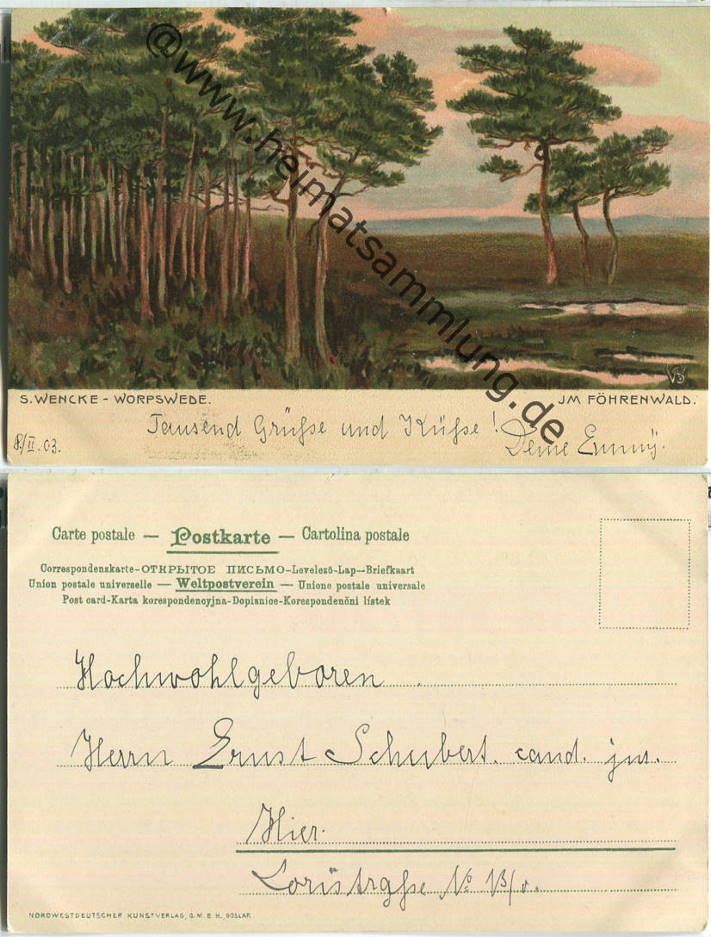 @www.heimatsammlung.de
S. WENCKE - WORPSWEDE. JM FÖHRENWALD.
Tausend Grüße und Küße!
8/II.03. Deine Emmy.
Carte postale — Postkarte — Cartolina postale
Correspondenskarte-ОТКРЫТОЕ ПИСЬМО-Levelező-Lap-Briefkaart
Union postale universelle — Weltpostverein — Unione postale universale
Post card-Karta korespondencyjna-Dopisnice-Korespondenční lístek
Hochwohlgeboren
Herrn Ernst Schubert. cand. jur.
Hier.
NORDWESTDEUTSCHER KUNSTVERLAG, G.M.B.H. GOSLAR.